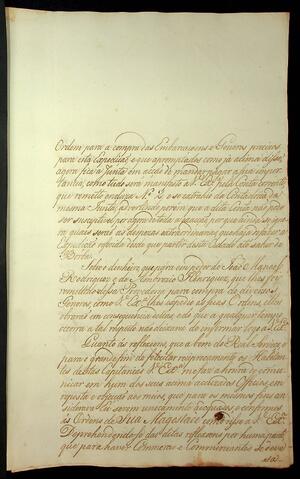 Ordem para a compra das Embarcaçoens e Generos precizos
para esta Expedição, e que apromptados como já acima disse
agora fica a Junta em acção de mandar pagar a sua impor-
tancia, como tudo será manifesto a V. Ex.ª pela Conta corrente,
que remetto onde se ve N.º 2, e se extrahio da Contadoria da
mesma Junta, á proporção porem que a dita Conta não pode
ser susceptivel por agora de toda a fatura, por que ainda se igno-
ra quaes serão as despezas extraordinarias, que haja de fazer a
Expedição referida desde que partir desta Cidade até sahir da
Barra.
Sobre o dinheiro, que pagara em pezo de João Manoel
Rodriguez, e de Honorio Rodriguez, que lhes foi
remettido dessa Provedoria para compra de diversos
Generos, como V. Ex.ª lhes expedio as suas Ordens, elles
obrarão em consequencia dellas, e do que a qualquer tempo
occorra a tal respeito não deixarei de informar logo a V. Ex.ª
Quanto ás reflexoens, que a bem do Real Serviço, e
para o grande fim de felicitar reciprocamente os Habitan-
tes destas Capitanias V. Ex.ª me faz a honra de commu-
nicar em hum dos seus acima accuzados Officios, em
resposta e objecto aos meus, que para os mesmos fins en-
dereçava Eu serem unicamente dispostas, e conformes
ás Ordens de Sua Magestade como disse a V. Ex.ª
Deprehendendo se das ditas reflexoens por huma parte,
que para haver Commercio e Commerciantes se deve